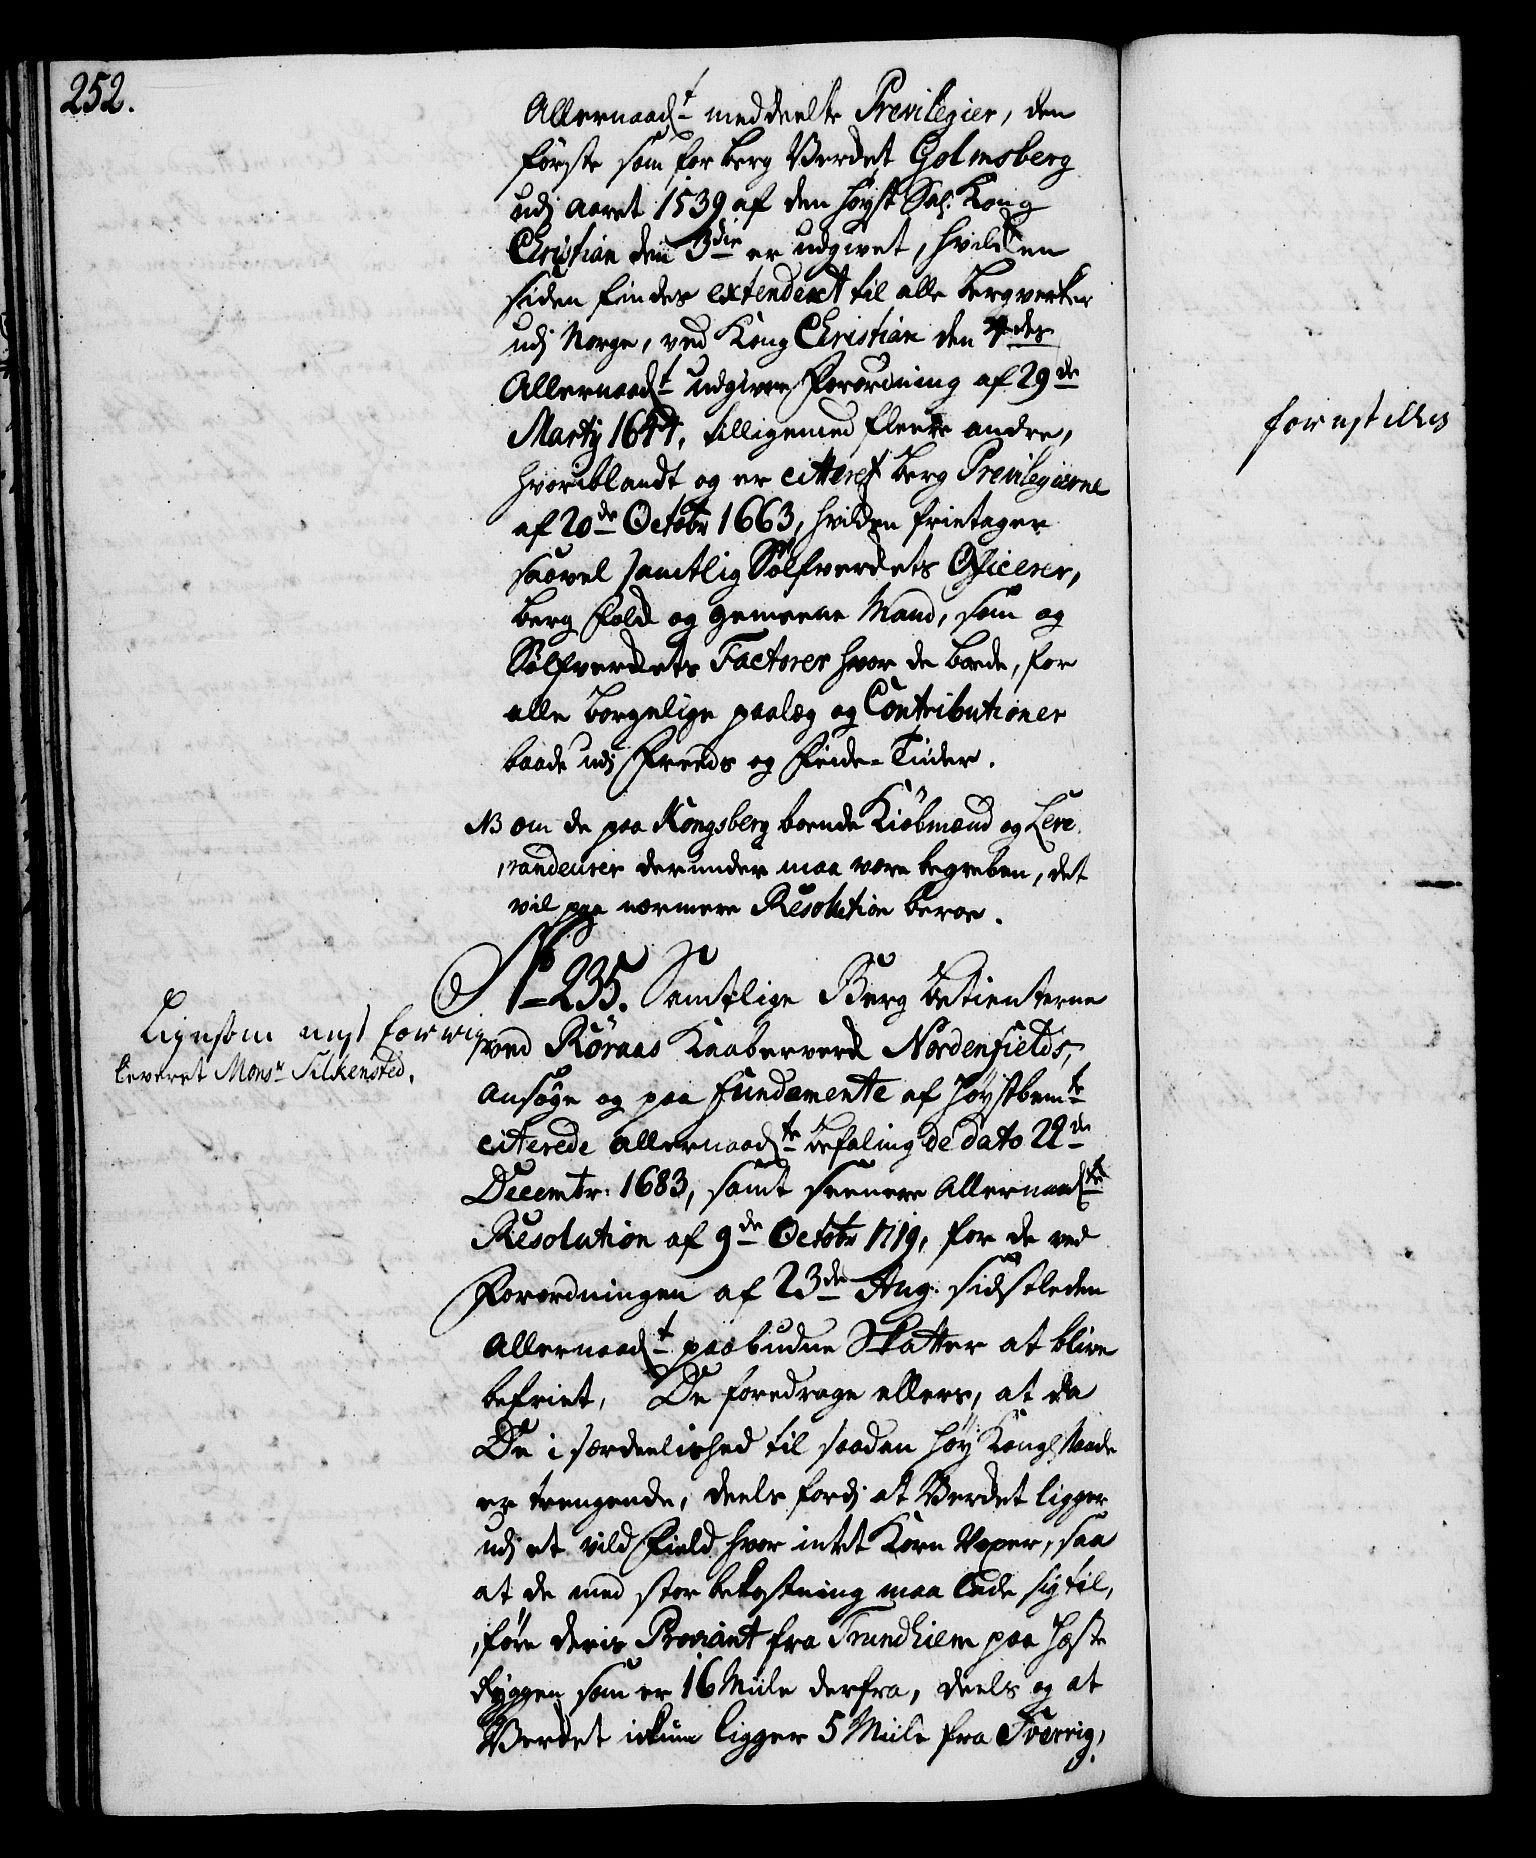 252.
Allernaad:t meddeelte Previlegier, den
første som for berg Verket Golmsberg
udj Aaret 1539 af den høyst Sal: Kong
Christian den 3die er udgivet, hvilken
siden findes extendert til alle bergverker
udj Norge, ved Kong Christian den 4des
Allernaad:t udgivne Forordning af 29de
Martij 1644, tilligemed fleere andre,
hvoriblandt og er citteret berg Previlegierne
af 20de Octobr 1663, hvilken frietager
saavel samtlig Sølfverkets Officerer,
berg folk og gemeene Mand, som og
Sølfverkets Factorer hvor de boede, for
alle borgelige paalæg og Contributioner
baade udj Freeds og Feide-Tiider.
NB om de paa Kongsberg boende Kiøbmænd og Leve
randeurer derunder maa være begreben, det
vil paa nærmere Resolution beroe.
No 235. Samtlige Berg betienterne
ved Røraas Kaaberverk Nordenfields,
Ansøge og paa fundamente af høystbemte
citerede allernaad:te befaling de dato 22de
Decembr: 1683, samt seenere Allernaad:te
Resolution af 9de Octobr 1719, for de ved
Forordningen af 23de Aug: sidstleden
Allernaad:t paabudne Skatter at blive
befriet, De foredrage ellers, at da
De i særdeelished til saadan høy Kongl Naade
er trengende, deels fordj at Verket ligger
udj et vild Field hvor intet Korn Voxer, saa
at de med stor bekostning maa lade sig til,
føre deris Proviant fra Trundhiem paa Heste
Ryggen som er 16 Miile derfra, deels og at
Verket ickun ligger 5 Miile fra Sverrig,
Ligesom nest forrige
leveret Monsr Silkensted.
forestilles